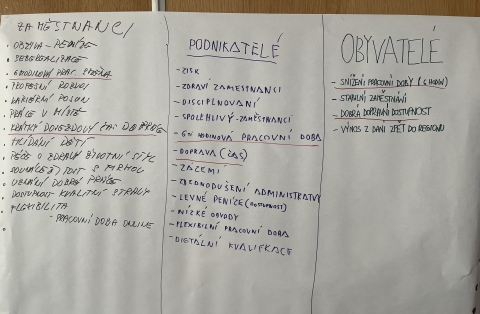 ZAMĚSTNANCI
- OBŽIVA - PENÍZE
- SEBEREALIZACE
- 6 HODINOVÁ PRAC. SMĚNA
- PROFESNÍ ROZVOJ
- KARIÉRNÍ POSUN
- PRÁCE V MÍSTĚ
- KRÁTKÝ DOJEZDOVÝ ČAS DO PRÁCE
- HLÍDÁNÍ DĚTÍ
- PÉČE O ZDRAVÝ ŽIVOTNÍ STYL
- SOUNÁLEŽITOST S FIRMOU
- UZNÁNÍ DOBRÉ PRÁCE
- DOSTUPNOST KVALITNÍ STRAVY
- FLEXIBILITA
- PRACOVNÍ DOBA ONLINE
PODNIKATELÉ
- ZISK
- ZDRAVÍ ZAMĚSTNANCI
- DISCIPLINOVANÍ
- SPOLEHLIVÝ - ZAMĚSTNANCI
- 6 HODINOVÁ PRACOVNÍ DOBA
- DOPRAVA (ČAS)
- ZÁZEMÍ
- ZJEDNODUŠENÍ ADMINISTRATIVY
- LEVNÉ PENÍZE (DOSTUPNOST)
- NÍZKÉ ODVODY
- FLEXIBILNÍ PRACOVNÍ DOBA
- DIGITÁLNÍ KVALIFIKACE
OBYVATELÉ
- SNÍŽENÍ PRACOVNÍ DOBY (6 HODIN)
- STABILNÍ ZAMĚSTNÁNÍ
- DOBRÁ DOPRAVNÍ DOSTUPNOST
- VÝNOS Z DANÍ ZPĚT DO REGIONU